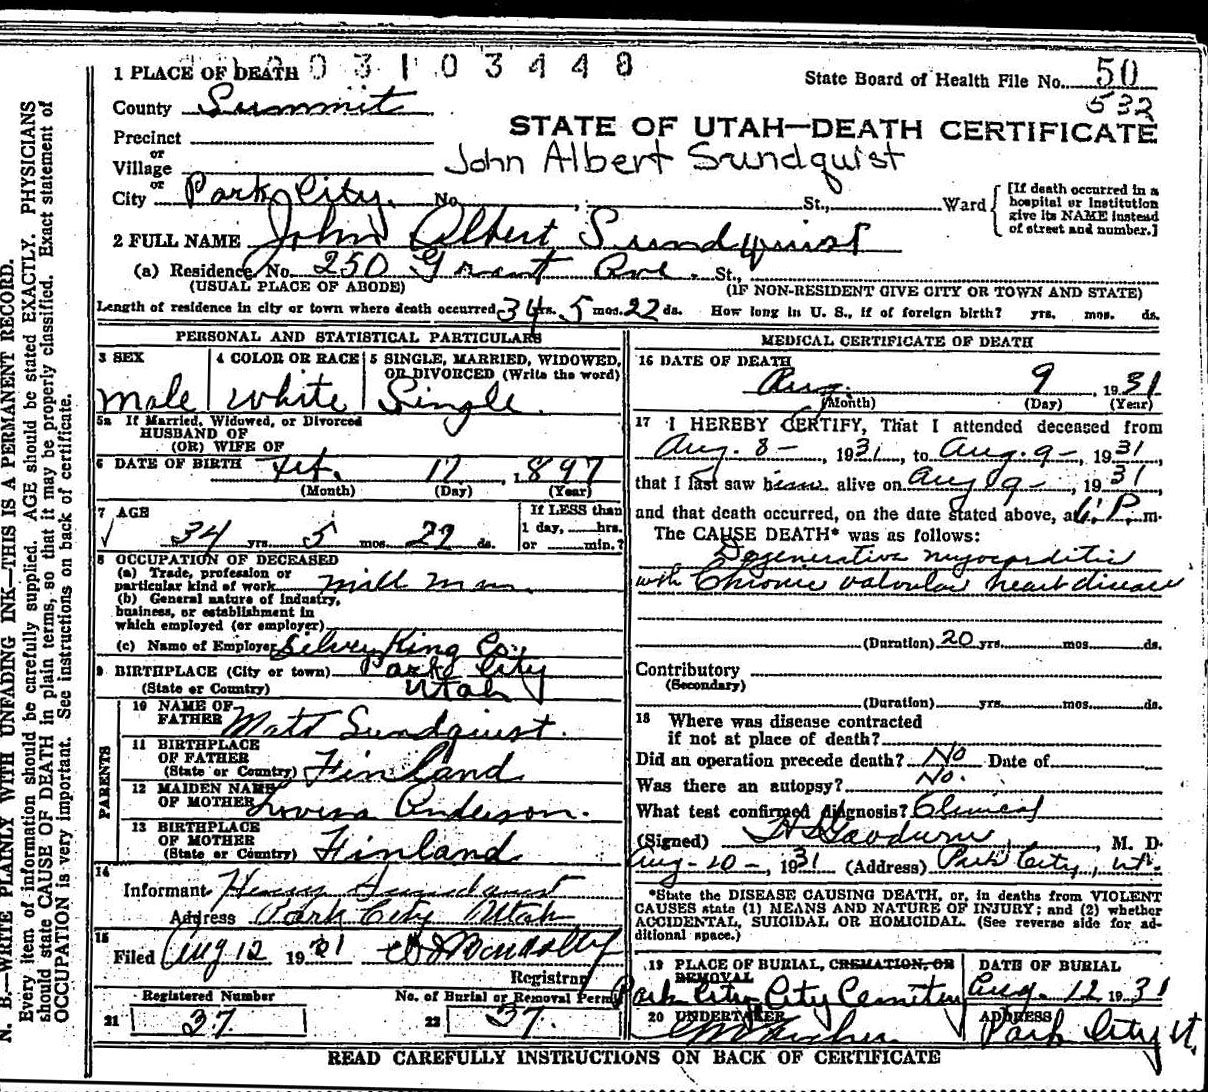 N. B.—WRITE PLAINLY WITH UNFADING INK—THIS IS A PERMANENT RECORD.
Every item of information should be carefully supplied. AGE should be stated EXACTLY. PHYSICIANS
should state CAUSE OF DEATH in plain terms, so that it may be properly classified. Exact statement of
OCCUPATION is very important. See instructions on back of certificate.
1 PLACE OF DEATH 0 3 1 0 3 4 4 8
State Board of Health File No. 50
532
County Summit
STATE OF UTAH—DEATH CERTIFICATE
Precinct
or
Village
John Albert Sundquist
or
City Park City. No. , St., Ward
[If death occurred in a
hospital or institution
give its NAME instead
of street and number.]
2 FULL NAME John Albert Sundquist
(a) Residence, No. 250 Grant Ave. St.,
(USUAL PLACE OF ABODE) (IF NON-RESIDENT GIVE CITY OR TOWN AND STATE)
Length of residence in city or town where death occurred 34 yrs. 5 mos. 22 ds. How long in U. S., if of foreign birth? yrs. mos. ds.
PERSONAL AND STATISTICAL PARTICULARS
3 SEX
male
4 COLOR OR RACE
white
5 SINGLE, MARRIED, WIDOWED,
OR DIVORCED (Write the word)
Single.
5a If Married, Widowed, or Divorced
HUSBAND OF
(OR) WIFE OF
6 DATE OF BIRTH Feb. 17, 1897
(Month) (Day) (Year)
7 AGE
34 yrs. 5 mos. 22 ds.
If LESS than
1 day, hrs.
or min.?
8 OCCUPATION OF DECEASED
(a) Trade, profession or
particular kind of work mill man
(b) General nature of industry,
business, or establishment in
which employed (or employer)
(c) Name of Employer Silver King Co.
9 BIRTHPLACE (City or town) Park City
(State or Country) Utah
PARENTS
10 NAME OF
FATHER Matt Sundquist.
11 BIRTHPLACE
OF FATHER
(State or Country) Finland
12 MAIDEN NAME
OF MOTHER Lovisa Anderson.
13 BIRTHPLACE
OF MOTHER
(State or Country) Finland
14
Informant Henry Sundquist
Address Park City Utah
15
Filed Aug 12 1931
Registrar
Registered Number
21 37.
No. of Burial or Removal Permit
22 37.
MEDICAL CERTIFICATE OF DEATH
16 DATE OF DEATH
Aug. 9 1931
(Month) (Day) (Year)
17 I HEREBY CERTIFY, That I attended deceased from
Aug. 8 –, 1931, to Aug. 9 –, 1931,
that I last saw him alive on Aug 9 –, 1931,
and that death occurred, on the date stated above, at 6 P. m.
The CAUSE DEATH* was as follows:
Degenerative myocarditis
with Chronic valvular heart disease
(Duration) 20 yrs. mos. ds.
Contributory
(Secondary)
(Duration) yrs. mos. ds.
18 Where was disease contracted
if not at place of death?
Did an operation precede death? No Date of
Was there an autopsy? No.
What test confirmed diagnosis? Clinical
(Signed) , M. D.
Aug – 10 –, 1931 (Address) Park City, Ut.
*State the DISEASE CAUSING DEATH, or, in deaths from VIOLENT
CAUSES state (1) MEANS AND NATURE OF INJURY; and (2) whether
ACCIDENTAL, SUICIDAL OR HOMICIDAL. (See reverse side for ad-
ditional space.)
19 PLACE OF BURIAL, CREMATION, OR
REMOVAL
Park City City Cemetery
DATE OF BURIAL
Aug. 12 1931
20 UNDERTAKER
ADDRESS
Park City Ut.
READ CAREFULLY INSTRUCTIONS ON BACK OF CERTIFICATE